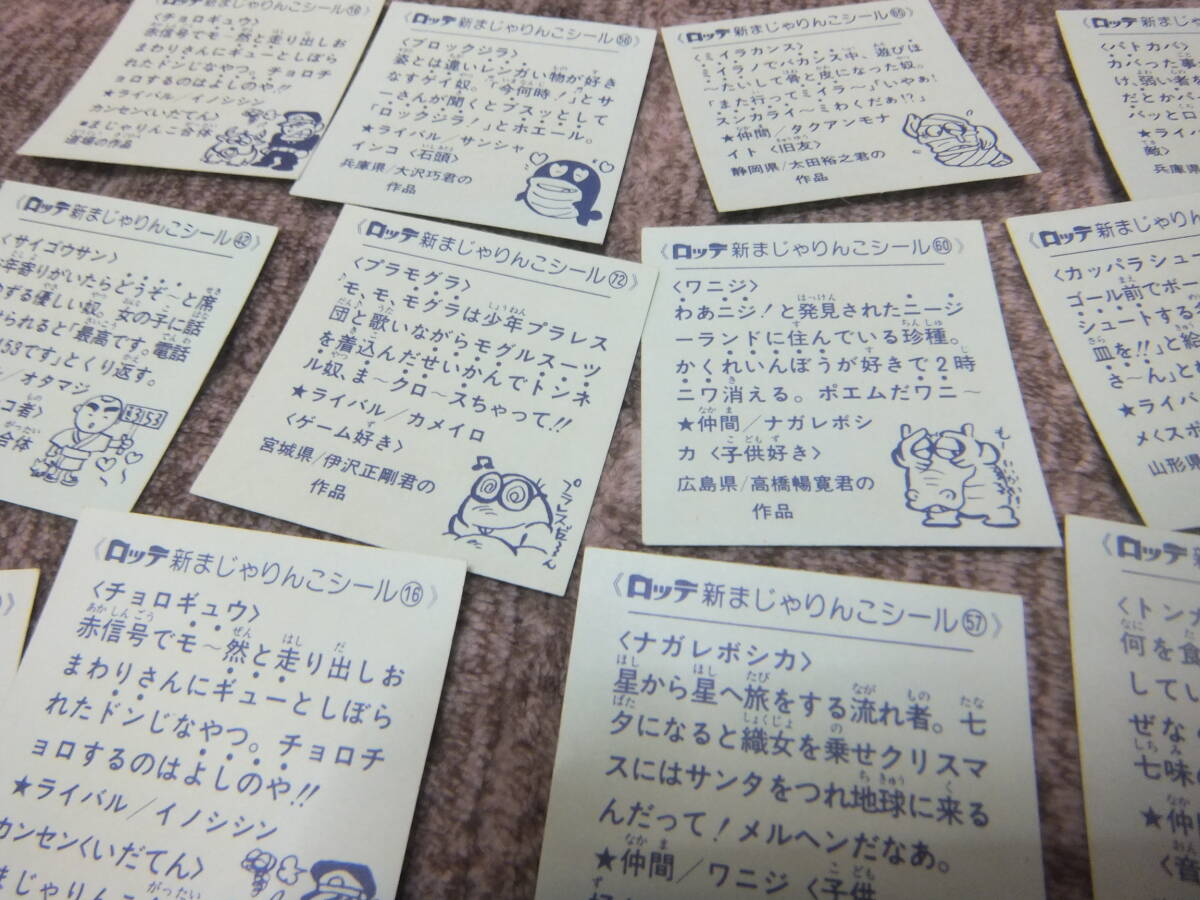 ロッテ新まじゃりんこシール⑯》
〈チョロギュウ〉
赤信号でモ〜然と走り出しお
まわりさんにギューとしぼら
れたドンじなやつ。チョロチ
ョロするのはよしのや!!
★ライバル/イノシシン
カンセン〈いだてん〉
■まじゃりんこ合体
道場の作品
《ロッテ新まじゃりんこシール56》
〈ブロックジラ〉
姿とは違いレンガい物が好き
なすゲイ奴。「今何時!」とサ
ーさんが聞くとブスッとして
「ロックジラ!」とホエール。
★ライバル/サンシャ
インコ〈石頭〉
兵庫県/大沢巧君の
作品
《ロッテ新まじゃりんこシール65》
〈ミイラカンス〉
ミイラノでバカンス中、遊びほ
〜たいして骨と皮になった奴。
「また行ってミイラ〜」いやぁ!
スンカライ〜ミわくだぁ!?」
★仲間/タクアンモナ
イト〈旧友〉
静岡県/太田裕之君の
作品
《ロッテ新ま
〈パトカバ〉
カバった事
け、弱い者
だとかバ
パッとロ
★ライバ
敵〉
兵庫県
ロッテ新まじゃりんこシール42》
〈サイゴウサン〉
年寄りがいたらどうぞ〜と席
ゆずる優しい奴。女の子に話
けられると「最高です。電話
153です」とくり返す。
/オタマジ
コ者〉
合体
3153
《ロッテ新まじゃりんこシール72》
〈プラモグラ〉
♪モ、モ、モグラは少年プラレス
団と歌いながらモグルスーツ
を着込んだせいかんでトンネ
ル奴、ま〜クロ〜スちゃって!!
★ライバル/カメイロ
〈ゲーム好き〉
宮城県/伊沢正剛君の
作品
プラレスだ〜ん
《ロッテ新まじゃりんこシール60》
〈ワニジ〉
わあニジ!と発見されたニージ
ーランドに住んでいる珍種。
かくれいんぼうが好きで2時
ニワ消える。ポエムだワニ〜
★仲間/ナガレボシ
カ〈子供好き〉
広島県/高橋暢寛君の
作品
も〜
《ロッテ新まじゃりんこシー
〈カッパラシュー
ゴール前でボー
シュートする
皿を!!」と絵
さ〜ん」とね
★ライバ
メ〈スポ
山形県
《ロッテ新まじゃりんこシール⑯》
〈チョロギュウ〉
赤信号でモ〜然と走り出しお
まわりさんにギューとしぼら
れたドンじなやつ。チョロチ
ョロするのはよしのや!!
★ライバル/イノシシン
カンセン〈いだてん〉
まじゃりんこ合体
《ロッテ新まじゃりんこシール57》
〈ナガレボシカ〉
星から星へ旅をする流れ者。七
夕になると織女を乗せクリスマ
スにはサンタをつれ地球に来る
んだって!メルヘンだなあ。
★仲間/ワニジ〈子供
《ロッテ新
〈トンガ
何を食
してい
ぜなら
七味
★仲間
〈音